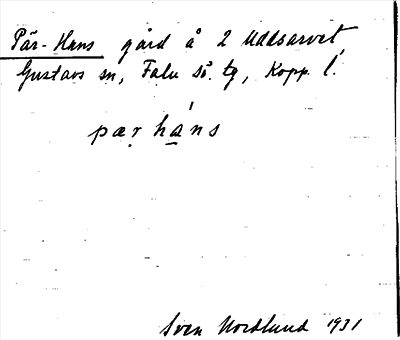 Pär-Hans gård å 2 Uddsarvet,
Gustavs sn, Falu Sö. tg, Kopp. l.
pær háns
Sven Nordlund 1931